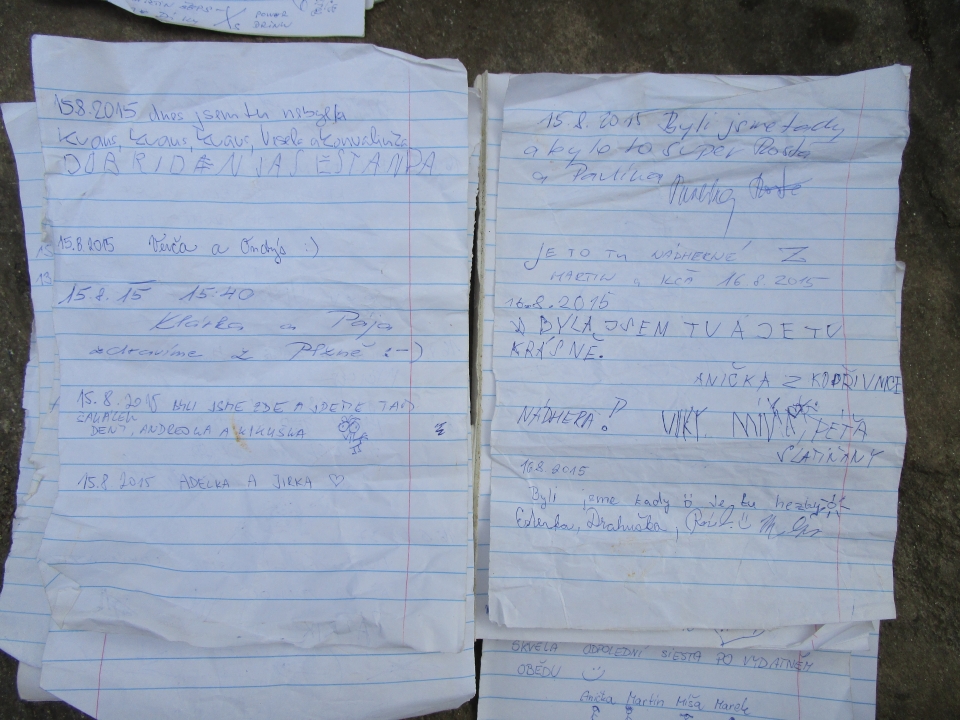 POWER
DRINK
15.8.2015 dnes jsem tu nebyla
Kraus, Kraus, Kraus, Vesela a Konvalinka
DOBRIDEN JA SEŠTANDA
15.8.2015 Verča a Ondys :)
15.8.15 15:40
Klárka a Pája
zdravíme z Plzně :-)
15.8.2015 BYLI JSME ZDE A JDEME TAM
DENY, ANDREJKA A KIKUŠKA
15.8 2015 ADELKA A JIRKA ♡
15.8.2015 Byli jsme tady
a bylo to super
a Pavlína
JE TO TU NÁDHERNÉ
MARTIN a 16.8.2015
16.8.2015
BYLA JSEM TU A JE TU
KRÁSNĚ.
ANIČKA Z KOPŘIVNICE
NÁDHERA! VIKY, PÉŤA
SLATIŇANY
16.8.2015
Byli jsme tady je tu hezky
Edenka, Drahuška,
SKVĚLÁ ODPOLEDNÍ SIESTA PO VYDATNÉM
OBĚDU
Anička Martin Míša Marek